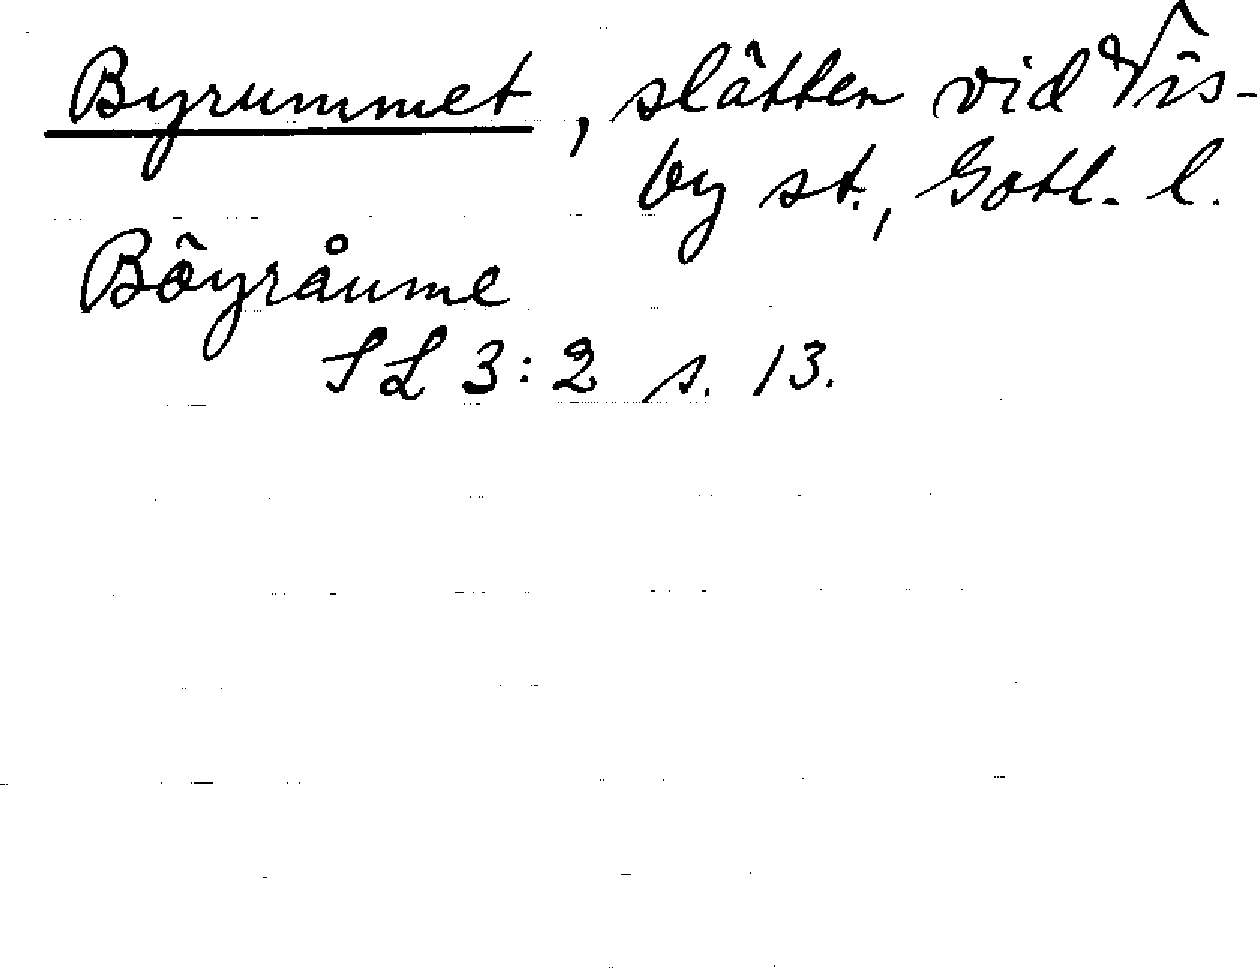 Byrummet, slätten vid Vis-
by st., Gotl. l.
Böyråume
SL 3:2 s. 13.